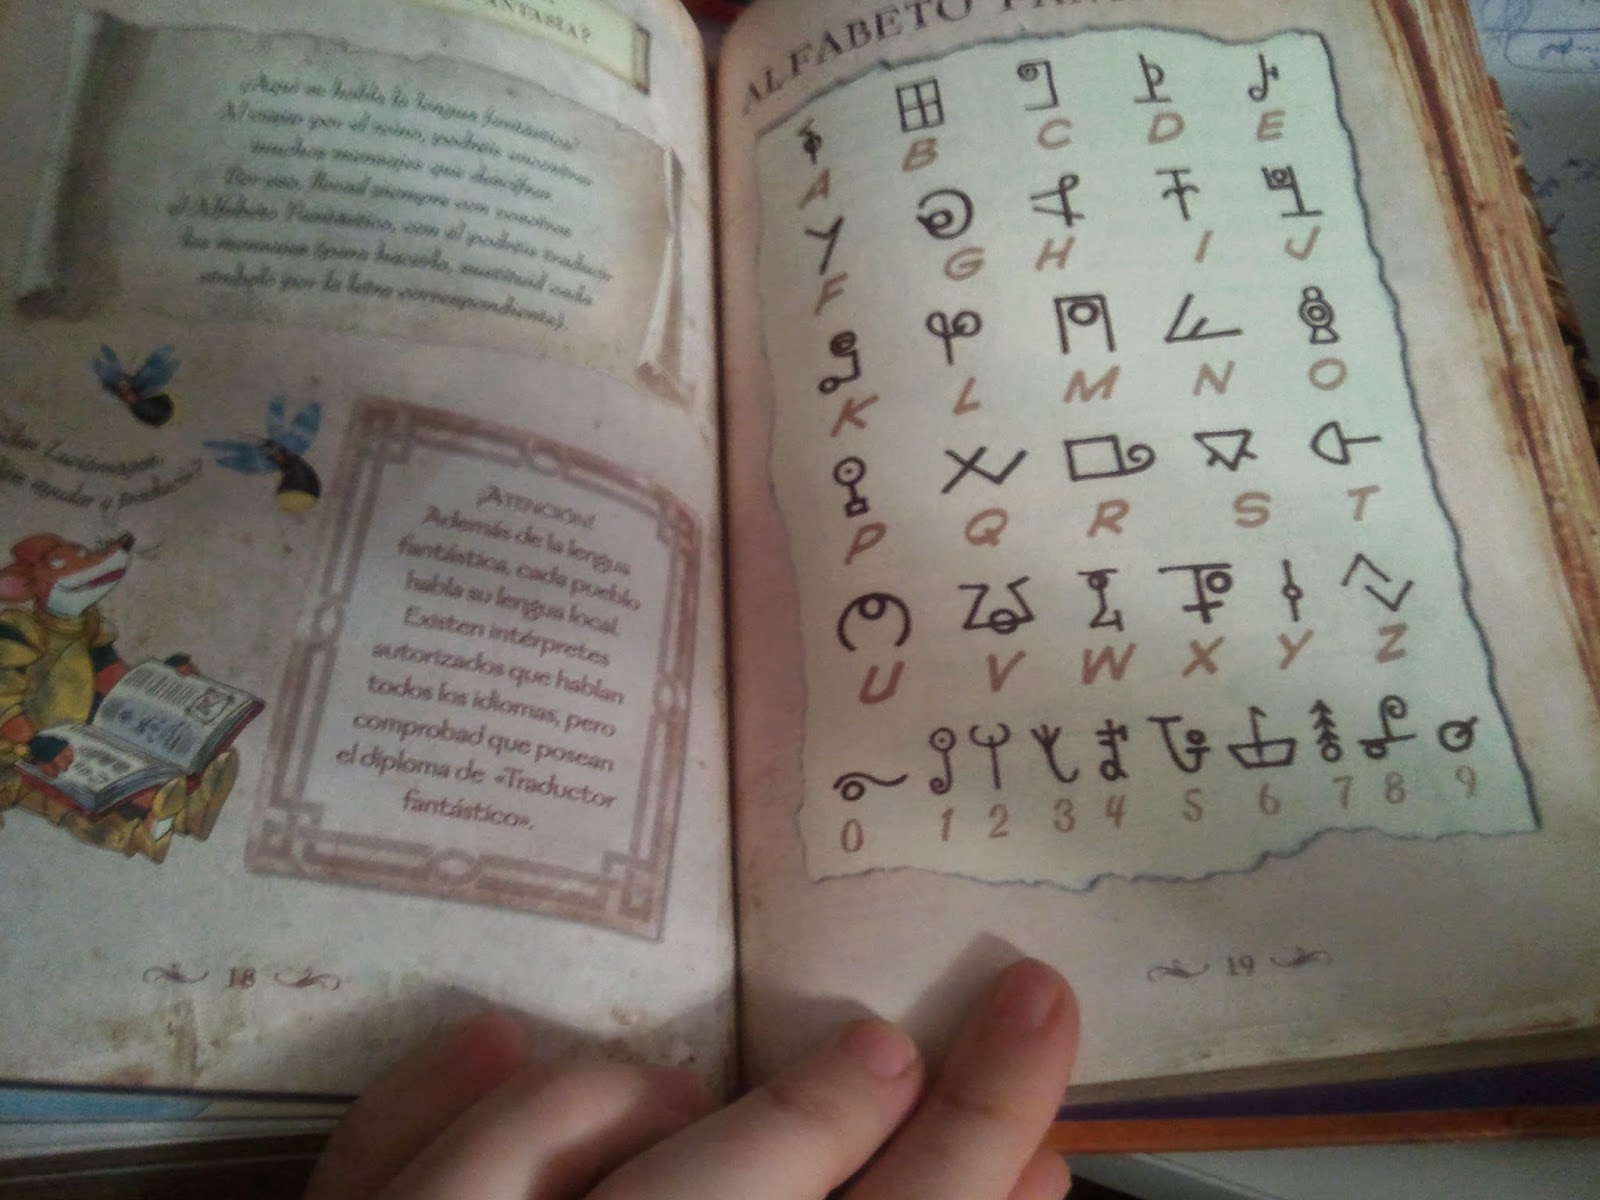 FANTASÍA?
¿Aquí se habla la lengua fantástica?
Al viajar por el reino, podréis encontrar
muchos mensajes que descifrar.
Por eso, llevad siempre con vosotros
el Alfabeto Fantástico, con él podréis traducir
los mensajes (para hacerlo, sustituid cada
símbolo por la letra correspondiente).
ayudar a traducir?
¡ATENCIÓN!
Además de la lengua
fantástica, cada pueblo
habla su lengua local.
Existen intérpretes
autorizados que hablan
todos los idiomas, pero
comprobad que posean
el diploma de «Traductor
fantástico».
18
ALFABETO
A B C D E
F G H I J
K L M N O
P Q R S T
U V W X Y Z
0 1 2 3 4 5 6 7 8 9
19